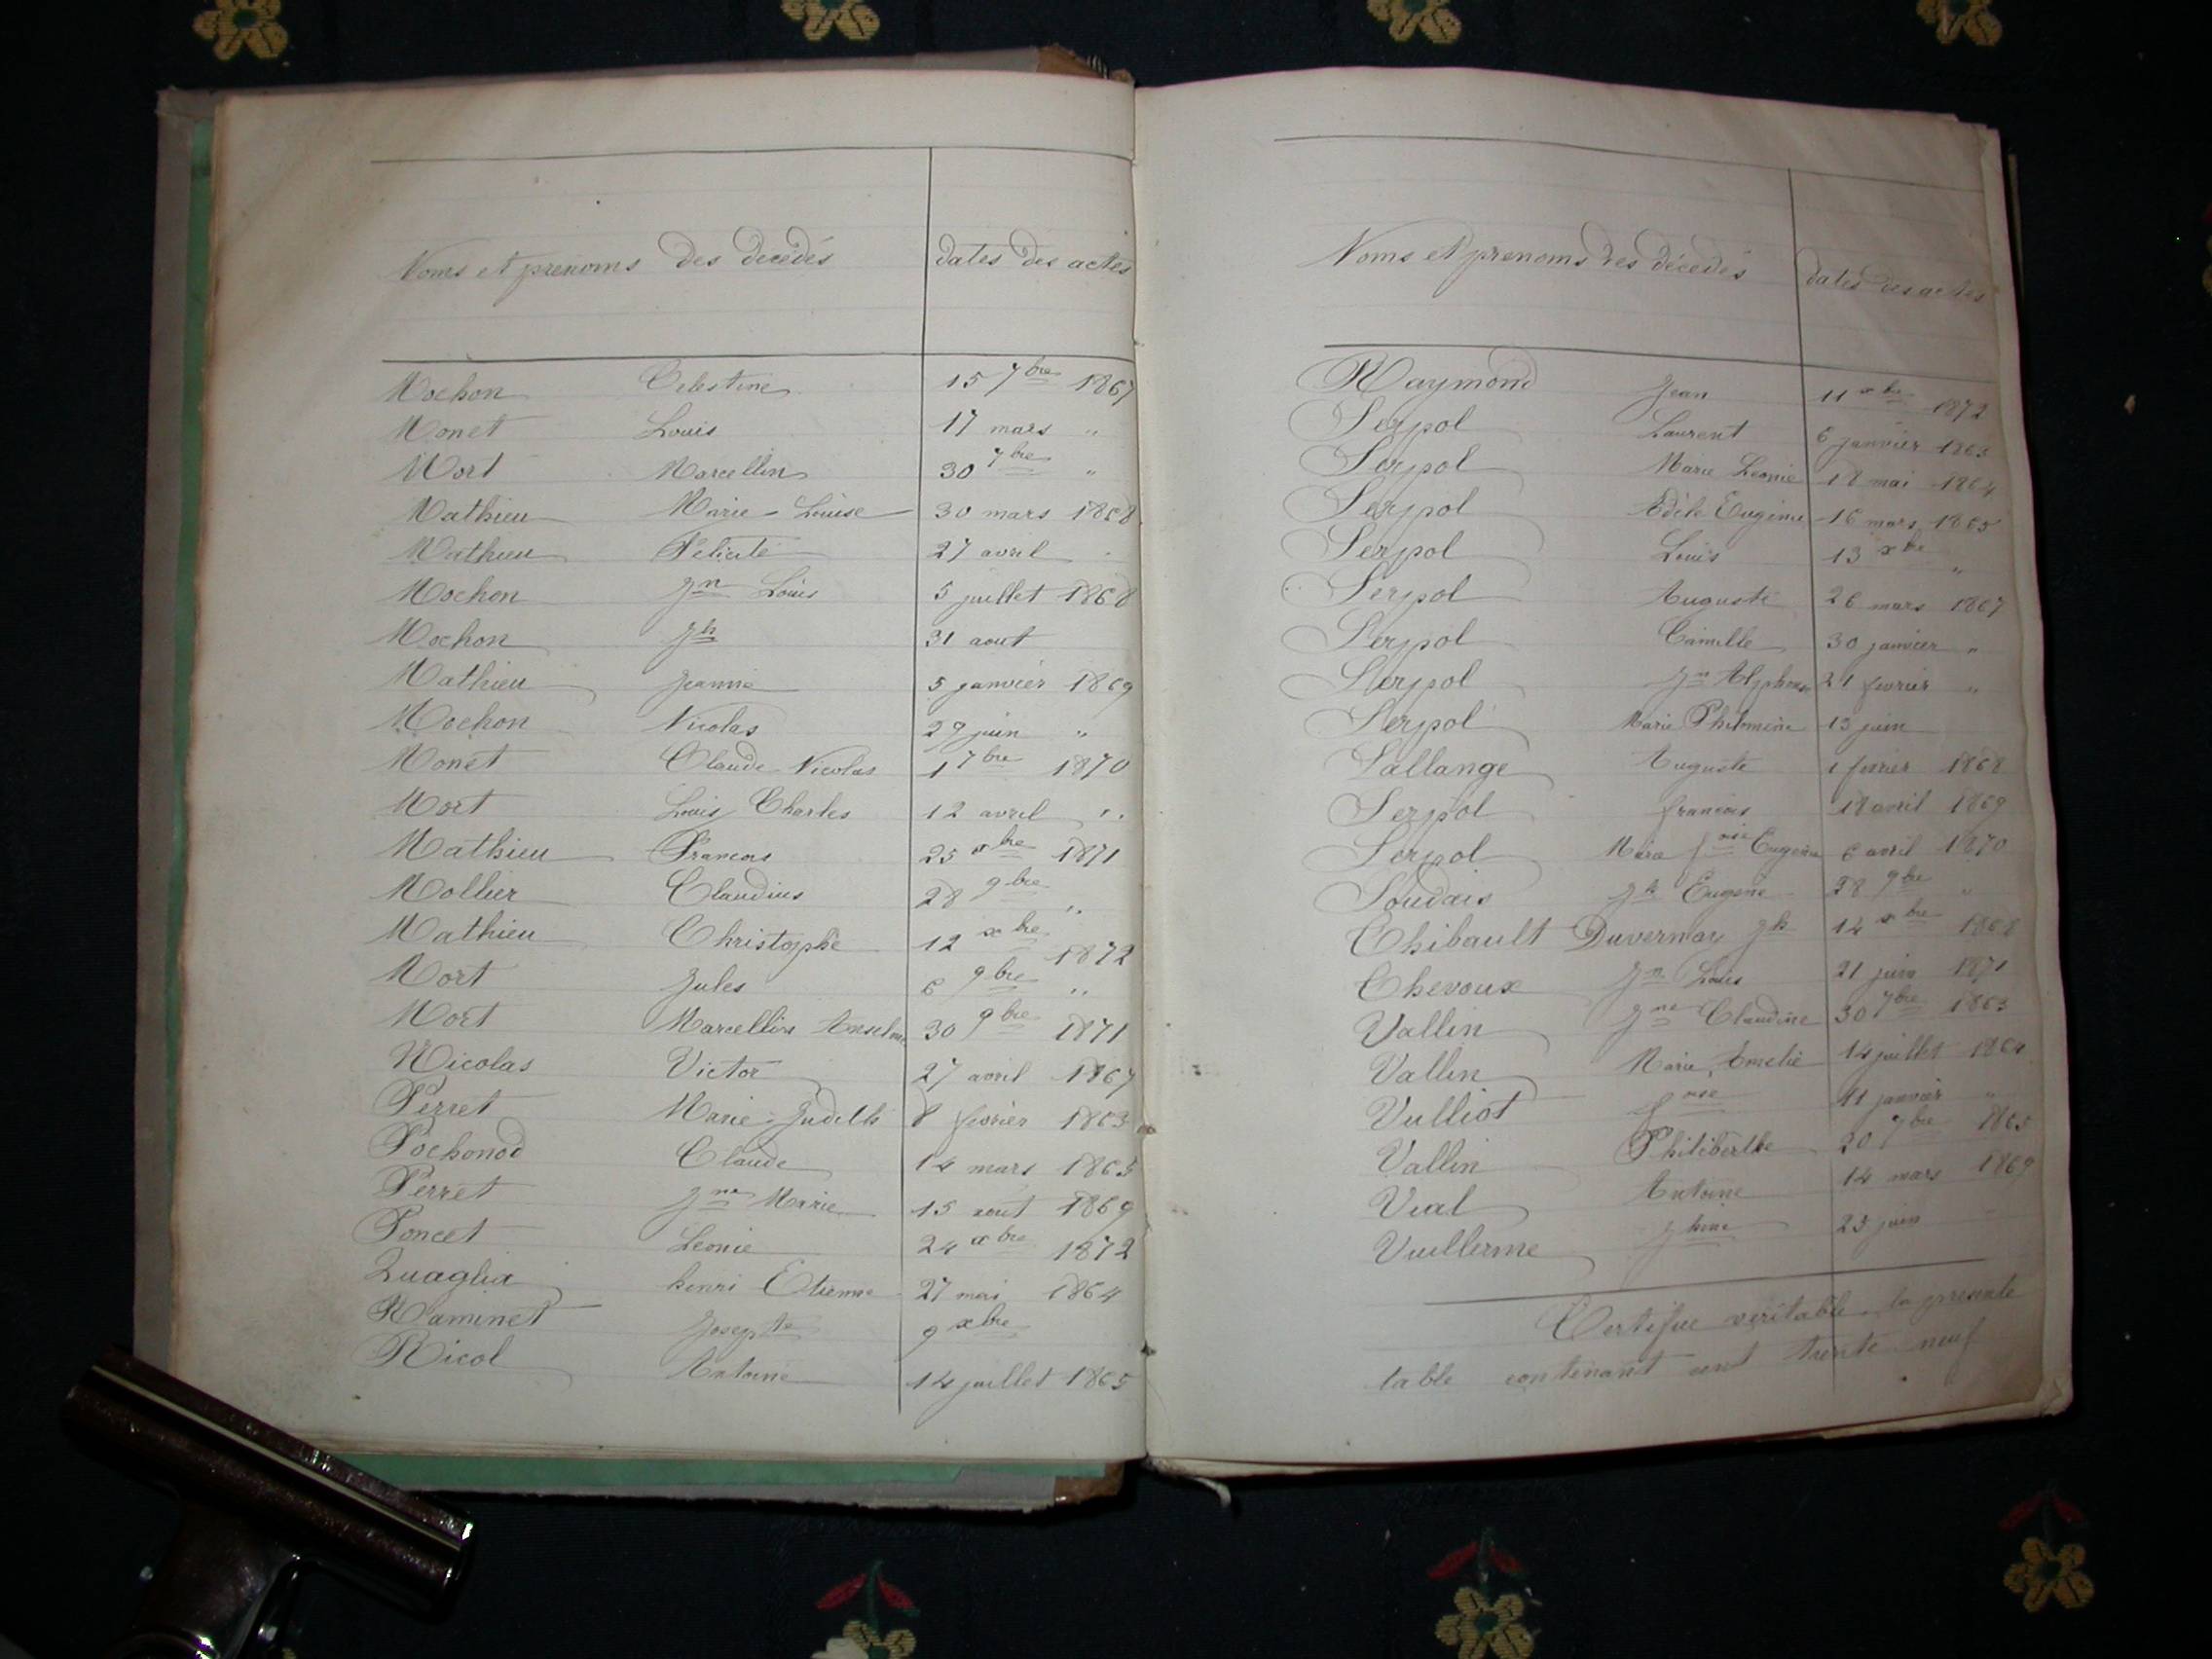 Noms et prenoms des decedés dates des actes
Mochon Celestine 15 7bre 1867
Monet Louis 17 mars "
Mort Marcellin 30 7bre "
Mathieu Marie-Louise 30 mars 1868
Mathieu Felicité 27 avril "
Mochon Jn Louis 5 juillet 1868
Mochon Jh 31 aout
Mathieu Jeanne 5 janvier 1869
Mochon Nicolas 29 juin "
Monet Claude Nicolas 1 7bre 1870
Mort Louis Charles 12 avril "
Mathieu Francois 25 xbre 1871
Mollier Claudius 28 9bre "
Mathieu Christophe 12 xbre 1872
Mort Jules 6 9bre "
Mort Marcellin Anselme 30 9bre 1871
Nicolas Victor 27 avril 1867
Perret Marie-Judith 8 fevrier 1863
Pochonod Claude 14 mars 1865
Perret Jne Marie 15 aout 1869
Poncet Leonie 24 xbre 1872
Quaglia henri Etienne 27 mai 1864
Raminet Josephte 9 xbre
Ricol Antoine 14 juillet 1865
Noms et prenoms des décédés dates des actes
Raymond Jean 11 xbre 1872
Serpol Laurent 6 janvier 1863
Serpol Marie Leonie 18 mai 1864
Serpol Adèle Eugenie 16 mars 1865
Serpol Louis 13 xbre "
Serpol Auguste 26 mars 1867
Serpol Camille 30 janvier "
Serpol Jn Alphonse 21 fevrier "
Serpol Marie Philomène 15 juin
Sallange Auguste 1 fevrier 1868
Serpol francois 18 avril 1869
Serpol Marie foise Eugenie 6 avril 1870
Soudais Jh Eugene 28 9bre "
Thibault Duvernay Jh 14 xbre 1868
Thevoux Jn Louis 21 juin 1871
Vallin Jne Claudine 30 7bre 1863
Vallin Marie Amelie 14 juillet 1864
Vulliot foise 11 janvier "
Vallin Philiberthe 20 7bre 1865
Vial Antoine 14 mars 1869
Vuillerme Jhine 25 juin
Certifie veritable la presente
table contenant cent trente neuf